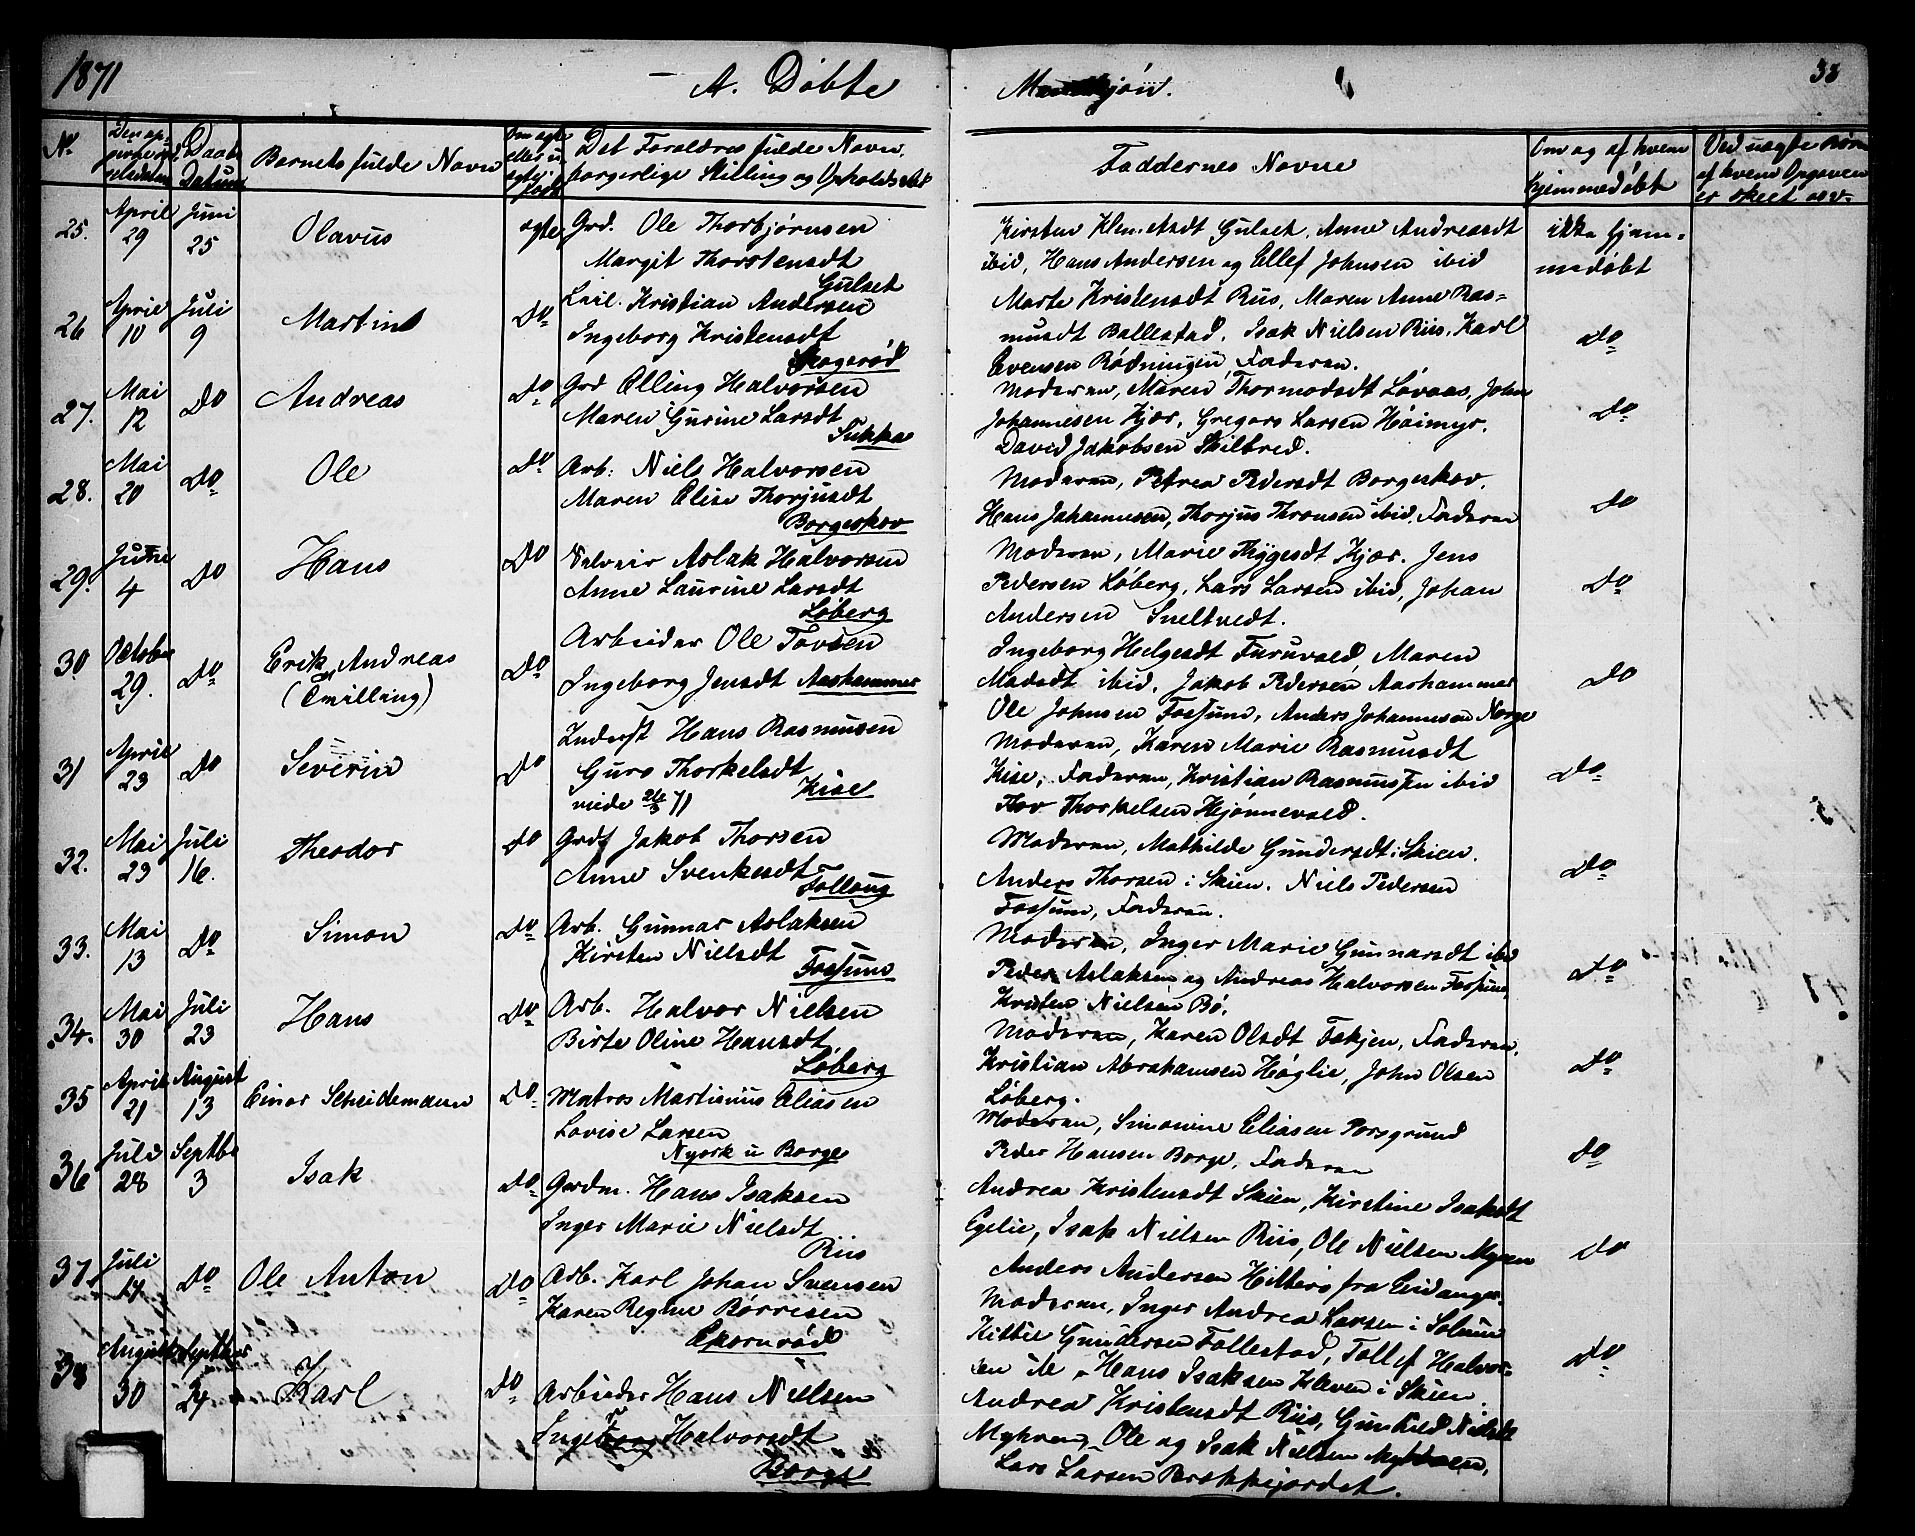 1871 A. Döbte Mandkjön. 38
No. Den opgiv. Fødselsdatum Daabs Datum Barnets fulde Navn Om ægte eller uægte født Det Forældres fulde Navn, borgerlige Stilling og Opholdssted Faddernes Navne Om og af hvem hjemmedøbt Ved uægte Børn af hvem Opgaven er skeet osv.
25. April 29 Juni 25 Olavus ægte Grd. Ole Thorbjørnsen
Margit Thorstensdt
Gulset
Kirsten Klemetsdt Gulset, Anne Andreasdt
ibid, Hans Andersen og Ellef Johnsen ibid
ikke hjem-
medøbt
26 April 10 Juli 9 Martin Do Leil. Kristian Andersen
Ingeborg Kristensdt
Skogerød
Marte Kristensdt Riis, Maren Anne Ras-
musdt Ballestad, Isak Nielsen Riis, Karl
Evensen Rødningen, Faderen.
Do
27. Mai 12 Do Andreas Do Grd Elling Halvorsen
Maren Gurine Larsdt
Sukka
Moderen, Maren Thormodsdt Løvaas, John
Johannesen Kjær, Gregers Larsen Høimyr,
David Jakobsen Skilbred.
Do
28. Mai 20 Do Ole Do Arb: Niels Halvorsen
Maren Elise Thorjusdt
Borgeskov
Moderen, Petrea Pedersdt Borgeskov,
Hans Johannesen, Thorjus Thronsen ibid, Faderen
Do
29. June 4 Do Hans Do Selveier Aslak Halvorsen
Anne Laurine Larsdt
Løberg
Moderen, Marie Thygesdt Kjær, Jens
Pedersen Løberg, Lars Larsen ibid, Johan
Andersen Sneltvedt.
Do
30 Octobe 29. Do Erik Andreas
(Tvilling) Do Arbeider Ole Tovsen
Ingeborg Jensdt Aashammer
Ingeborg Helgesdt Furuvald, Maren
Madsdt ibid, Jakob Pedersen Aashammer
Ole Johnsen Fossum, Anders Johannesen Norge
Do
31 April 23 Do Severin Do Inderst Hans Rasmusen
Guro Thorkelsdt
viede 26/3 71 Kise
Moderen, Karen Marie Rasmusdt
Kise, Faderen, Kristian Rasmussen ibid
Thov Thorkelsen Hjønnevald.
Do
32. Mai 29 Juli 16. Theodor Do Grdf Jakob Thorsen
Anne Svenkesdt
Follaug
Moderen, Mathilde Gundersdt i Skien,
Anders Thorsen i Skien, Niels Pedersen
Fossum, Faderen.
Do
33. Mai 13 Do Simon Do Arb. Gunnar Aslaksen
Kirsten Nielsdt
Fossum
Moderen, Inger Marie Gunnarsdt ibid
Peder Aslaksen og Andreas Halvorsen Fossum,
Kristen Nielsen Bø.
Do
34. Mai 30 Juli 23 Hans Do Arb. Halvor Nielsen
Birte Oline Hansdt
Løberg
Moderen, Karen Olsdt Fskjen, Faderen,
Kristian Abrahamsen Høglie, John Olsen
Løberg.
Do
35 April 21 August 13 Einar Scheidemann Do Matros Martinius Eliasen
Lovise Larsen
Nyork u Borge
Moderen, Simonine Eliasen Porsgrund
Peder Hansen Borge, Faderen
Do
36 Juli 28 Septbe 3 Isak Do Grdm. Hans Isaksen
Inger Marie Nielsdt
Riis
Andrea Kristensdt Skien, Kirstine Isaksdt
Egelie, Isak Nielsen Riis, Ole Nielsen Myren
Anders Andersen Hitterø fra Eidanger.
Do
37. Juli 14 Do Ole Anton Do Arb. Karl Johan Svensen
Karen Regine Børresen
Ekornrød
Moderen, Inger Andrea Larsen i Solum
Kittil Gundersen Follestad, Tollef Halvor-
sen ib, Hans Isaksen Kleven i Skien
Do
38 August 30 Septber 24 Karl Do Arbeider Hans Nielsen
Ingeborg Halvorsdt
Borge
Andrea Kristensdt Riis, Gunhild Nielsdt
Myhren, Ole og Isak Nielsen Myhren,
Lars Larsen Brækkejordet.